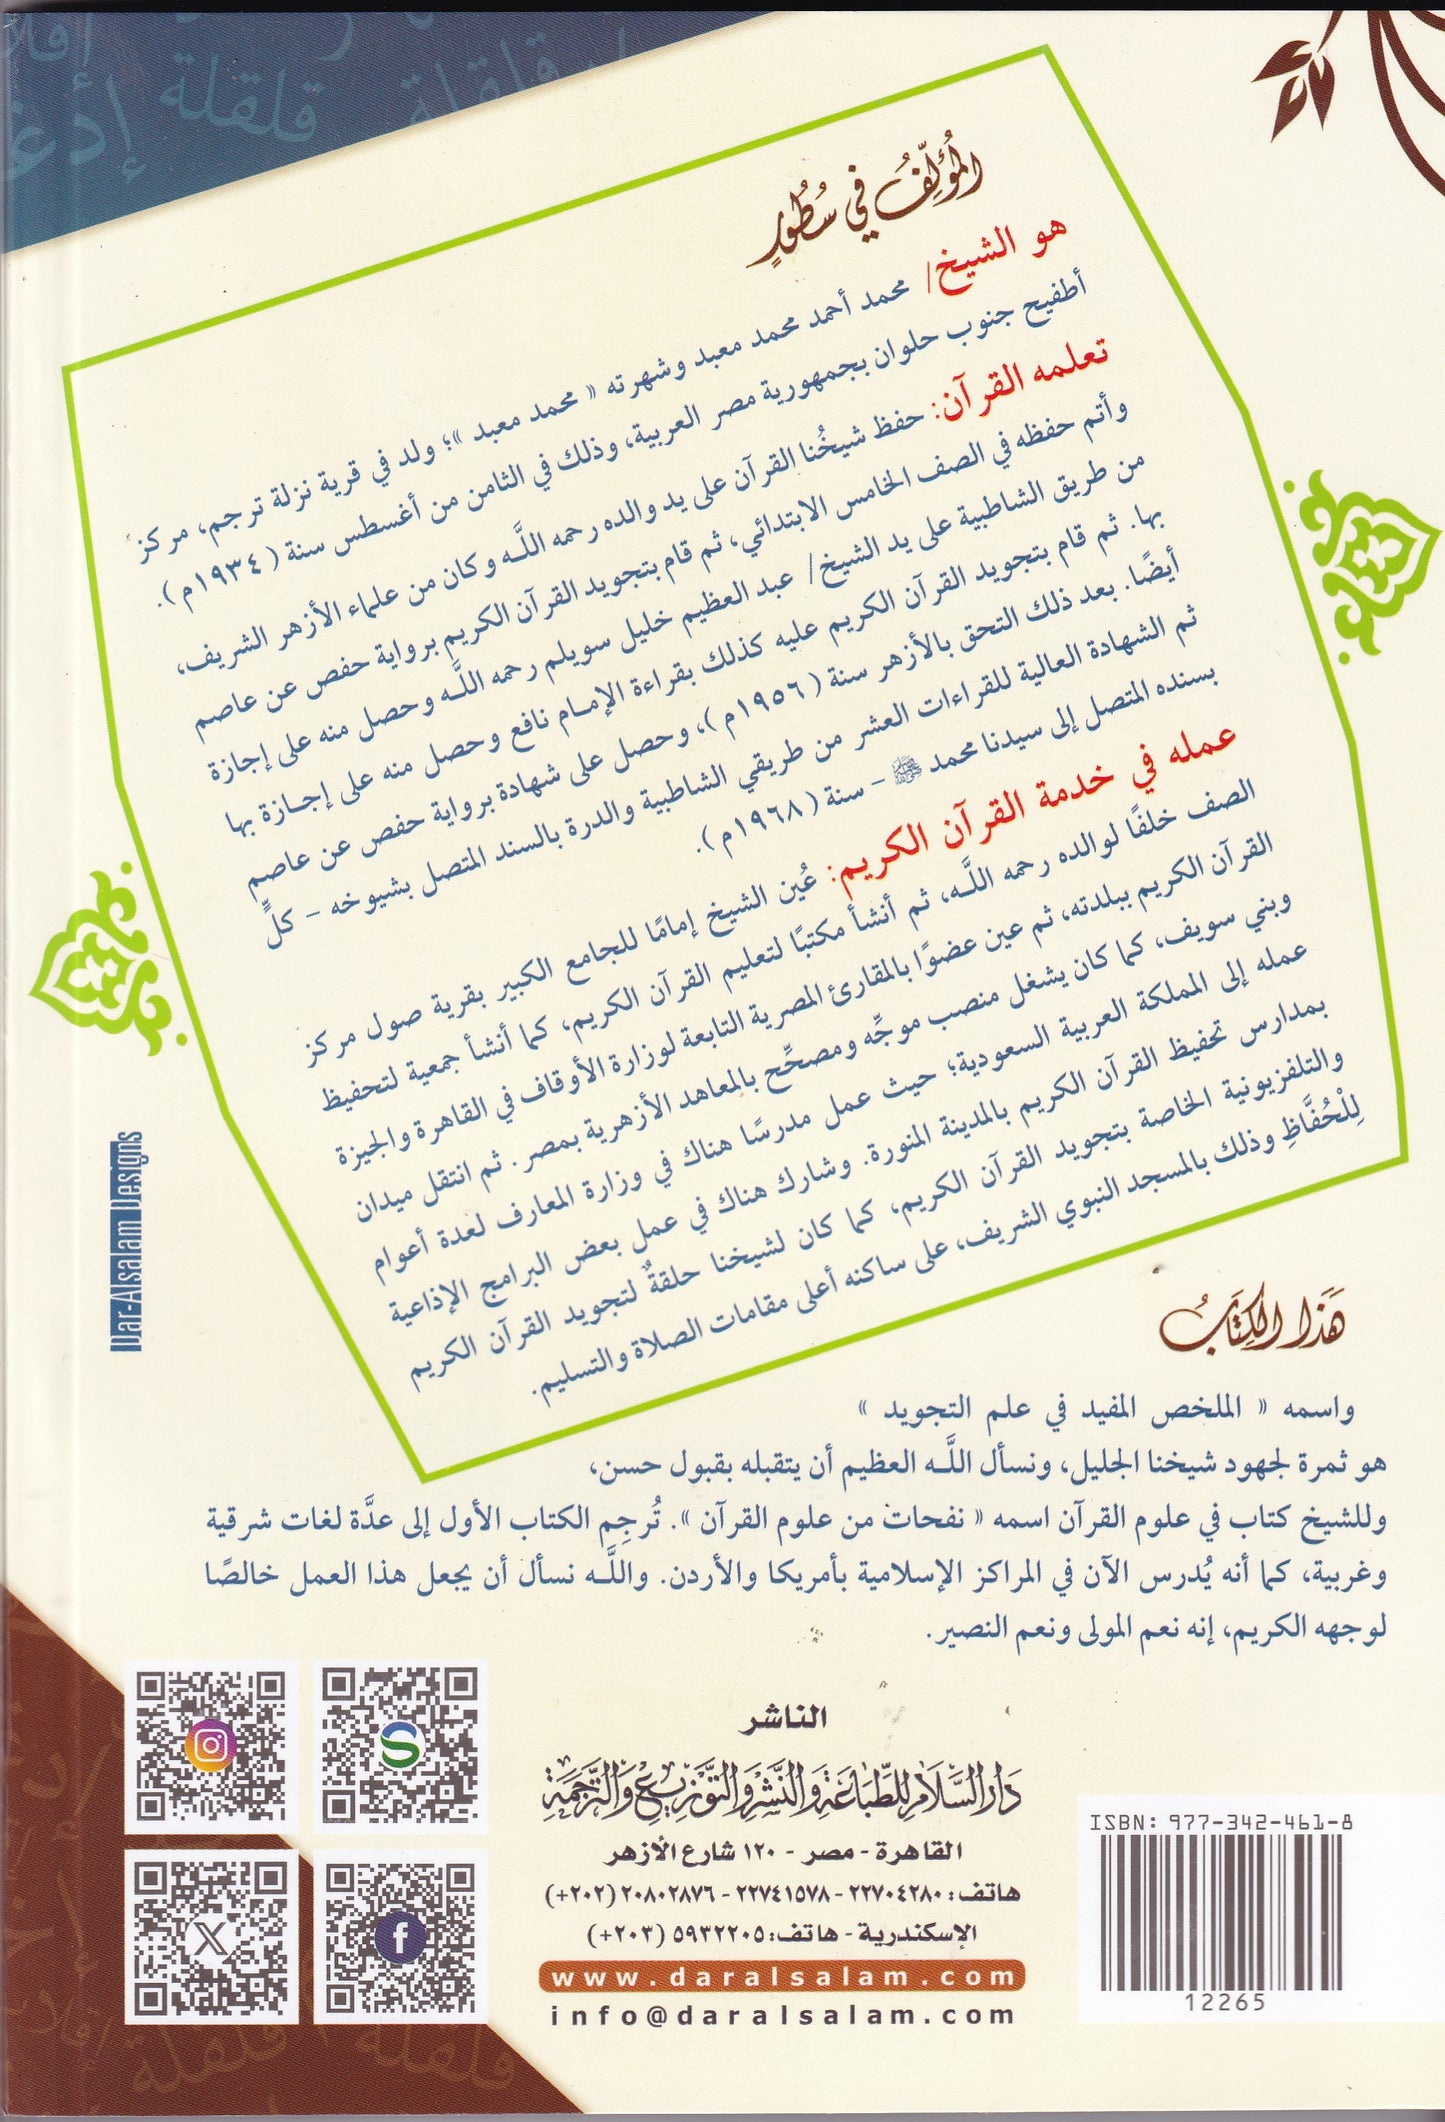 المُؤلِّفُ في سُطُورٍ
هو الشيخ/ محمد أحمد محمد معبد وشهرته « محمد معبد »؛ ولد في قرية نزلة ترجم، مركز
أطفيح جنوب حلوان بجمهورية مصر العربية، وذلك في الثامن من أغسطس سنة ( ١٩٣٤م ).
تعلمه القرآن: حفظ شيخُنا القرآن على يد والده رحمه اللَّه وكان من علماء الأزهر الشريف،
وأتم حفظه في الصف الخامس الابتدائي، ثم قام بتجويد القرآن الكريم برواية حفص عن عاصم
من طريق الشاطبية على يد الشيخ/ عبد العظيم خليل سويلم رحمه اللَّه وحصل منه على إجازة
بها. ثم قام بتجويد القرآن الكريم عليه كذلك بقراءة الإمام نافع وحصل منه على إجازة بها
أيضًا. بعد ذلك التحق بالأزهر سنة ( ١٩٥٦م )، وحصل على شهادة برواية حفص عن عاصم
ثم الشهادة العالية للقراءات العشر من طريقي الشاطبية والدرة بالسند المتصل بشيوخه - كلٍّ
بسنده المتصل إلى سيدنا محمد ﷺ - سنة ( ١٩٦٨م ).
عمله في خدمة القرآن الكريم: عُين الشيخ إمامًا للجامع الكبير بقرية صول مركز
الصف خلفًا لوالده رحمه اللَّه، ثم أنشأ مكتبًا لتعليم القرآن الكريم، كما أنشأ جمعية لتحفيظ
القرآن الكريم ببلدته، ثم عين عضوًا بالمقارئ المصرية التابعة لوزارة الأوقاف في القاهرة والجيزة
وبني سويف، كما كان يشغل منصب موجِّه ومصحِّح بالمعاهد الأزهرية بمصر. ثم انتقل ميدان
عمله إلى المملكة العربية السعودية؛ حيث عمل مدرسًا هناك في وزارة المعارف لعدة أعوام
بمدارس تحفيظ القرآن الكريم بالمدينة المنورة. وشارك هناك في عمل بعض البرامج الإذاعية
والتلفزيونية الخاصة بتجويد القرآن الكريم، كما كان لشيخنا حلقةٌ لتجويد القرآن الكريم
لِلْحُفَّاظِ وذلك بالمسجد النبوي الشريف، على ساكنه أعلى مقامات الصلاة والتسليم.
Dar-Alsalam Designs
هَذَا الكِتَابُ
واسمه « الملخص المفيد في علم التجويد »
هو ثمرة لجهود شيخنا الجليل، ونسأل اللَّه العظيم أن يتقبله بقبول حسن،
وللشيخ كتاب في علوم القرآن اسمه « نفحات من علوم القرآن ». تُرجِم الكتاب الأول إلى عدَّة لغات شرقية
وغربية، كما أنه يُدرس الآن في المراكز الإسلامية بأمريكا والأردن. واللَّه نسأل أن يجعل هذا العمل خالصًا
لوجهه الكريم، إنه نعم المولى ونعم النصير.
الناشر
دَارُالسَّلَامِ لِلطِّبَاعَةِ وَالنَّشْرِ وَالتَّوْزِيعِ وَالتَّرْجَمَةِ
القاهرة - مصر - ١٢٠ شارع الأزهر
هاتف: ٢٢٧٠٤٢٨٠ - ٢٢٧٤١٥٧٨ - ٢٠٨٠٢٨٧٦ (٢٠٢+)
الإسكندرية - هاتف: ٥٩٣٢٢٠٥ (٢٠٣+)
www.daralsalam.com
info@daralsalam.com
ISBN: 977-342-461-8
12265
إدغ
قلقلة
قلقلة
قلقلة
قلقلة